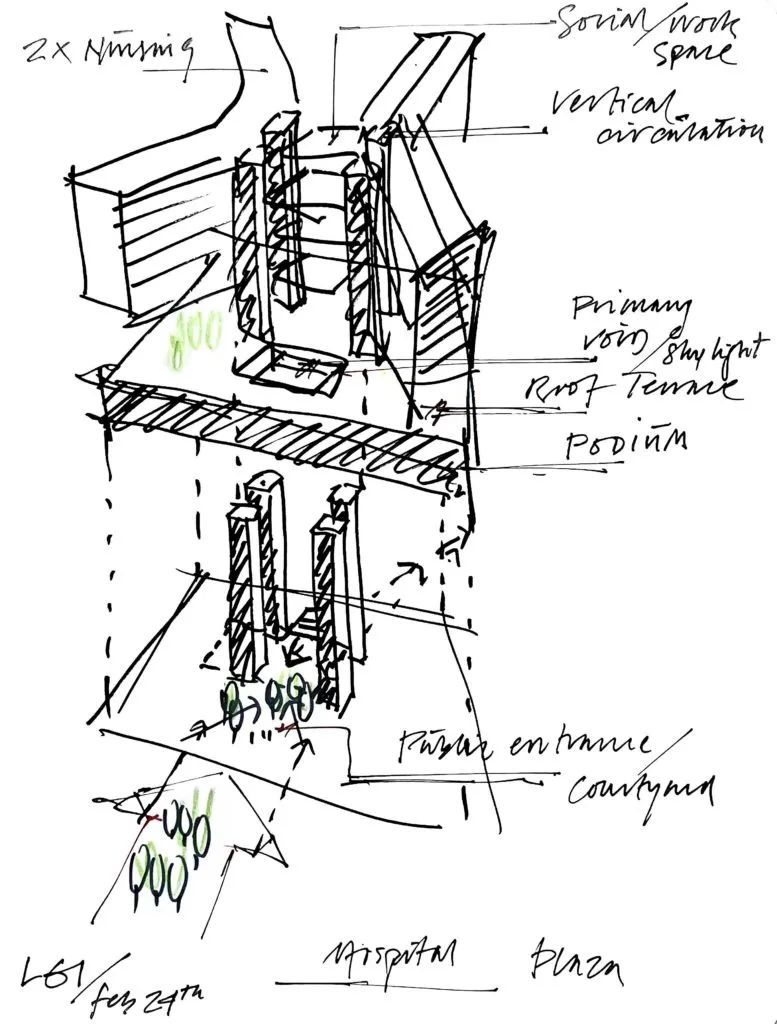 2x Nursing
Social/work
space
Vertical
circulation
Primary
void/
skylight
Roof Terrace
Podium
Public entrance/
Courtyard
LGI/
Feb 24th
Hospital Plaza